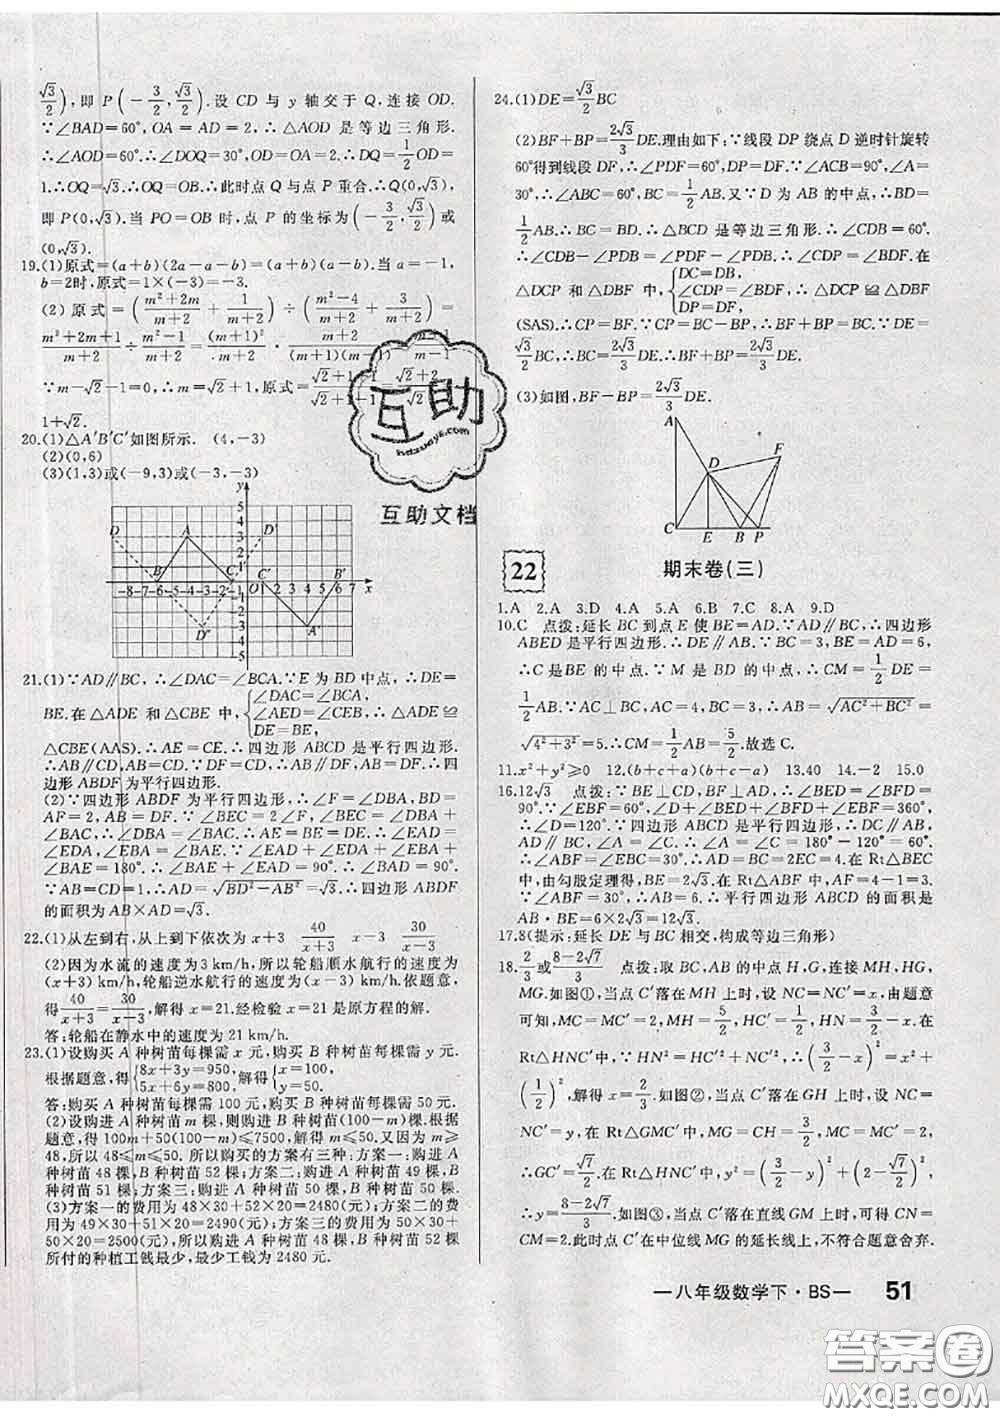 √3/2),即 P(-3/2,√3/2).设 CD 与 y 轴交于 Q,连接 OD.
∵∠BAD=60°,OA=AD=2,∴△AOD 是等边三角形.
∴∠AOD=60°.∴∠DOQ=30°,OD=OA=2.∴DQ=1/2OD=
1.∴OQ=√3.∴OB=OQ.∴此时点 Q 与点 P 重合.∴Q(0,√3).
即 P(0,√3).当 PO=OB 时,点 P 的坐标为(-3/2,√3/2)或
(0,√3).
19.(1)原式=(a+b)(2a-a-b)=(a+b)(a-b).当 a=-1,
b=2时,原式=1×(-3)=-3.
(2)原式=((m²+2m)/(m+2)+1/(m+2))÷((m²-4)/(m+2)+3/(m+2))=
(m²+2m+1)/(m+2)÷(m²-1)/(m+2)=(m+1)²/(m+2)·(m+2)/((m+1)(m-1))=
∵m-√2-1=0,∴m=√2+1,原式=
1+√2.
20.(1)△A′B′C′如图所示. (4,-3)
(2)(0,6)
(3)(1,3)或(-9,3)或(-3,-3)
y
5
4
D A 3 D′
2
1
B C C′ B′
-8-7-6-5-4-3-2-1 O 1 2 3 4 5 6 7 x
D″ A′
5
21.(1)∵AD∥BC,∴∠DAC=∠BCA.∵E 为 BD 中点,∴DE=
BE.在△ADE 和△CBE 中,{∠DAC=∠BCA, ∠AED=∠CEB, DE=BE, ∴△ADE≌
△CBE(AAS).∴AE=CE.∴四边形 ABCD 是平行四边形.
∴AB∥CD,AB=CD.∵DF=CD,∴AB∥DF,AB=DF.∴四
边形 ABDF 为平行四边形.
(2)∵四边形 ABDF 为平行四边形,∴∠F=∠DBA,BD=
AF=2,AB=DF=1.∵∠BEC=2∠F,∠BEC=∠DBA+
∠BAC,∴∠DBA=∠BAC.∵AB∥DF,∴∠EAD=
∠EDA,∠EBA=∠BAE.∵∠EAD+∠EDA+∠EBA+
∠BAE=180°.∴∠EAD+∠BAE=90°.∴∠BAD=90°.
∵AB=CD=1,∴AD=√(BD²-AB²)=√3.∴四边形 ABDF
的面积为 AB×AD=√3.
22.(1)从左到右,从上到下依次为 x+3 40/(x+3) x-3 30/(x-3)
(2)因为水流的速度为3 km/h,所以轮船顺水航行的速度为
(x+3)km/h,轮船逆水航行的速度为(x-3)km/h.依题意,
得40/(x+3)=30/(x-3),解得 x=21.经检验 x=21是原方程的解.
答:轮船在静水中的速度为 21 km/h.
23.(1)设购买 A 种树苗每棵需 x 元,购买 B 种树苗每棵需 y 元.
根据题意,得{8x+3y=950, 5x+6y=800,解得{x=100, y=50.
答:购买 A 种树苗每棵需 100 元,购买 B 种树苗每棵需 50 元.
(2)设购进 A 种树苗 m 棵,则购进 B 种树苗(100-m)棵.根据
题意,得 100m+50(100-m)≤7500,解得 m≤50.又因为 m≥
48,所以48≤m≤50.所以购买的方案有三种:方案一:购进 A
种树苗 48 棵,B 种树苗 52 棵;方案二:购进 A 种树苗 49 棵,B
种树苗 51 棵;方案三:购进 A 种树苗 50 棵,B 种树苗 50 棵.
(3)方案一的费用为 48×30+52×20=2480(元);方案二的费
用为 49×30+51×20=2490(元);方案三的费用为 50×30+
50×20=2500(元),所以购进 A 种树苗 48 棵,B 种树苗 52 棵
所付的种植工钱最少,最少工钱为 2480 元.
24.(1)DE=√3/2BC
(2)BF+BP=2√3/3DE.理由如下:∵线段 DP 绕点 D 逆时针旋转
60°得到线段 DF,∴∠PDF=60°,DP=DF.∵∠ACB=90°,∠A=
30°,∴∠ABC=60°,BC=1/2AB.又∵D 为 AB 的中点,∴BD=
1/2AB.∴BC=BD.∴△BCD 是等边三角形.∴∠CDB=60°.
∴∠CDB-∠PDB=∠PDF-∠PDB.∴∠CDP=∠BDF.在
△DCP 和△DBF 中,{DC=DB, ∠CDP=∠BDF, DP=DF, ∴△DCP≌△DBF
(SAS).∴CP=BF.∵CP=BC-BP,∴BF+BP=BC.∵DE=
√3/2BC,∴BC=2√3/3DE.∴BF+BP=2√3/3DE.
(3)如图,BF-BP=2√3/3DE.
A
D F
C E B P
22 期末卷(三)
1.A 2.A 3.D 4.A 5.A 6.B 7.C 8.A 9.D
10.C 点拨:延长 BC 到点 E 使 BE=AD.∵AD∥BC,∴四边形
ABED 是平行四边形.∴DE∥AB.∵BC=3,BE=AD=6,
∴C是 BE 的中点.∵M 是 BD 的中点,∴CM=1/2DE=
1/2AB.∵AC⊥BC,AC=4,BC=3,∴AB=√(AC²+BC²)=
√(4²+3²)=5.∴CM=1/2AB=5/2.故选 C.
11.x²+y²≥0 12.(b+c+a)(b+c-a) 13.40 14.-2 15.0
16.12√3 点拨:∵BE⊥CD,BF⊥AD,∴∠BEF=∠BFD=
90°.∵∠EBF=60°,∠D+∠BED+∠BFD+∠EBF=360°,
∴∠D=120°.∵四边形 ABCD 是平行四边形,∴DC∥AB,
AD∥BC,∠A=∠C.∴∠A=∠C=180°-120°=60°.
∴∠ABF=∠EBC=30°.∴AD=BC=2EC=4.在Rt△BEC
中,由勾股定理得,BE=2√3.在 Rt△ABF 中,AF=4-1=3.
∵∠ABF=30°,∴AB=6.∴平行四边形 ABCD 的面积是
AB·BE=6×2√3=12√3.
17.8(提示:延长 DE 与 BC 相交,构成等边三角形)
18.2/3或(8-2√7)/3 点拨:取 BC,AB 的中点 H,G,连接 MH,HG,
MG.如图①,当点 C′落在 MH 上时,设 NC=NC′=x,由题意
可知,MC=MC′=2,MH=5/2,HC′=1/2,HN=3/2-x.在
Rt△HNC′中,∵HN²=HC′²+NC′²,∴(3/2-x)²=x²+
(1/2)²,解得x=2/3.如图②,当点 C′落在 GH 上时,设 NC=
NC′=y,在 Rt△GMC′中,MG=CH=3/2,MC=MC′=2,
∴GC′=√7/2.在 Rt△HNC′中,y²=(3/2-y)²+(2-√7/2)²,
∴y=(8-2√7)/3.如图③,当点 C′落在直线 GM 上时,可得 CN=
CM=2.此时点 C′在中位线 MG 的延长线上,不符合题意舍弃.
—八年级数学下·BS— 51
互助
互助文档
答案圈
MXQE.COM